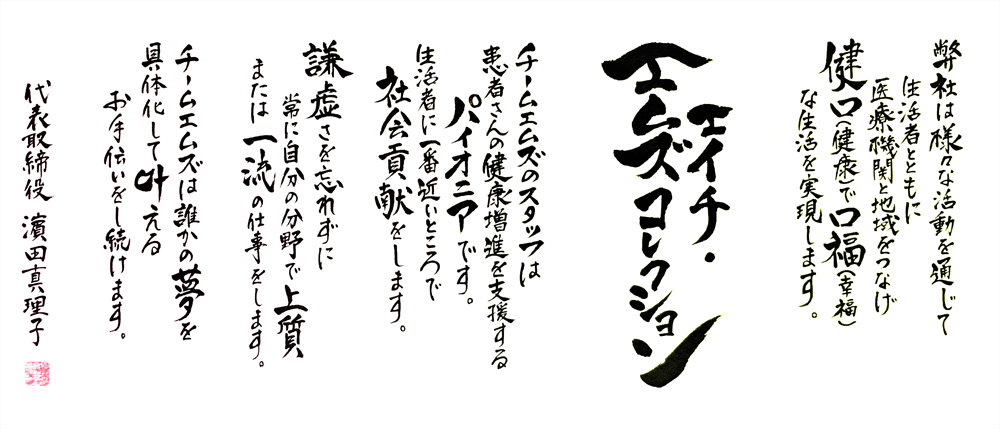 弊社は様々な活動を通じて
生活者とともに
医療機関と地域をつなげ
健口(健康)で口福(幸福)
な生活を実現します。
エイチ・
エムズコレクション
チームエムズのスタッフは
患者さんの健康増進を支援する
パイオニアです。
生活者に一番近いところで
社会貢献をします。
謙虚さを忘れずに
常に自分の分野で上質
または一流の仕事をします。
チームエムズは誰かの夢を
具体化して叶える
お手伝いをし続けます。
代表取締役 濱田真理子